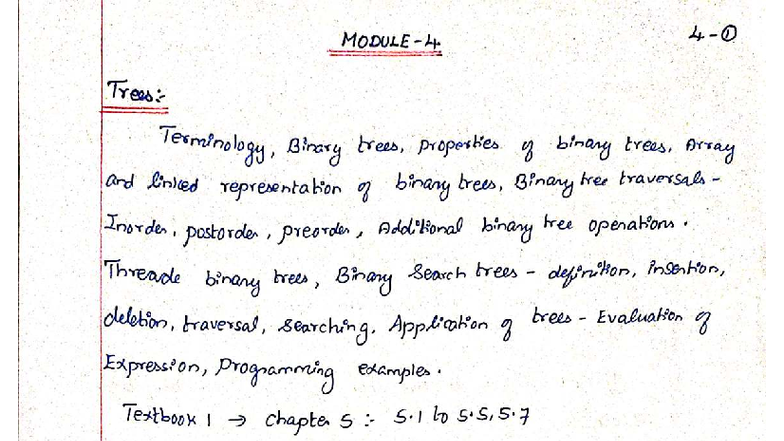 MODULE-4
4-①
Trees:-
Terminology, Binary trees, properties of binary trees, Array
and linked representation of binary trees, Binary tree traversals -
Inorder, postorder, preorder, Additional binary tree operations.
Threade binary trees, Binary Search trees - definition, insertion,
deletion, traversal, searching, Application of trees - Evaluation of
Expression, Programming examples.
Textbook 1 → chapter 5 :- 5.1 to 5.5, 5.7